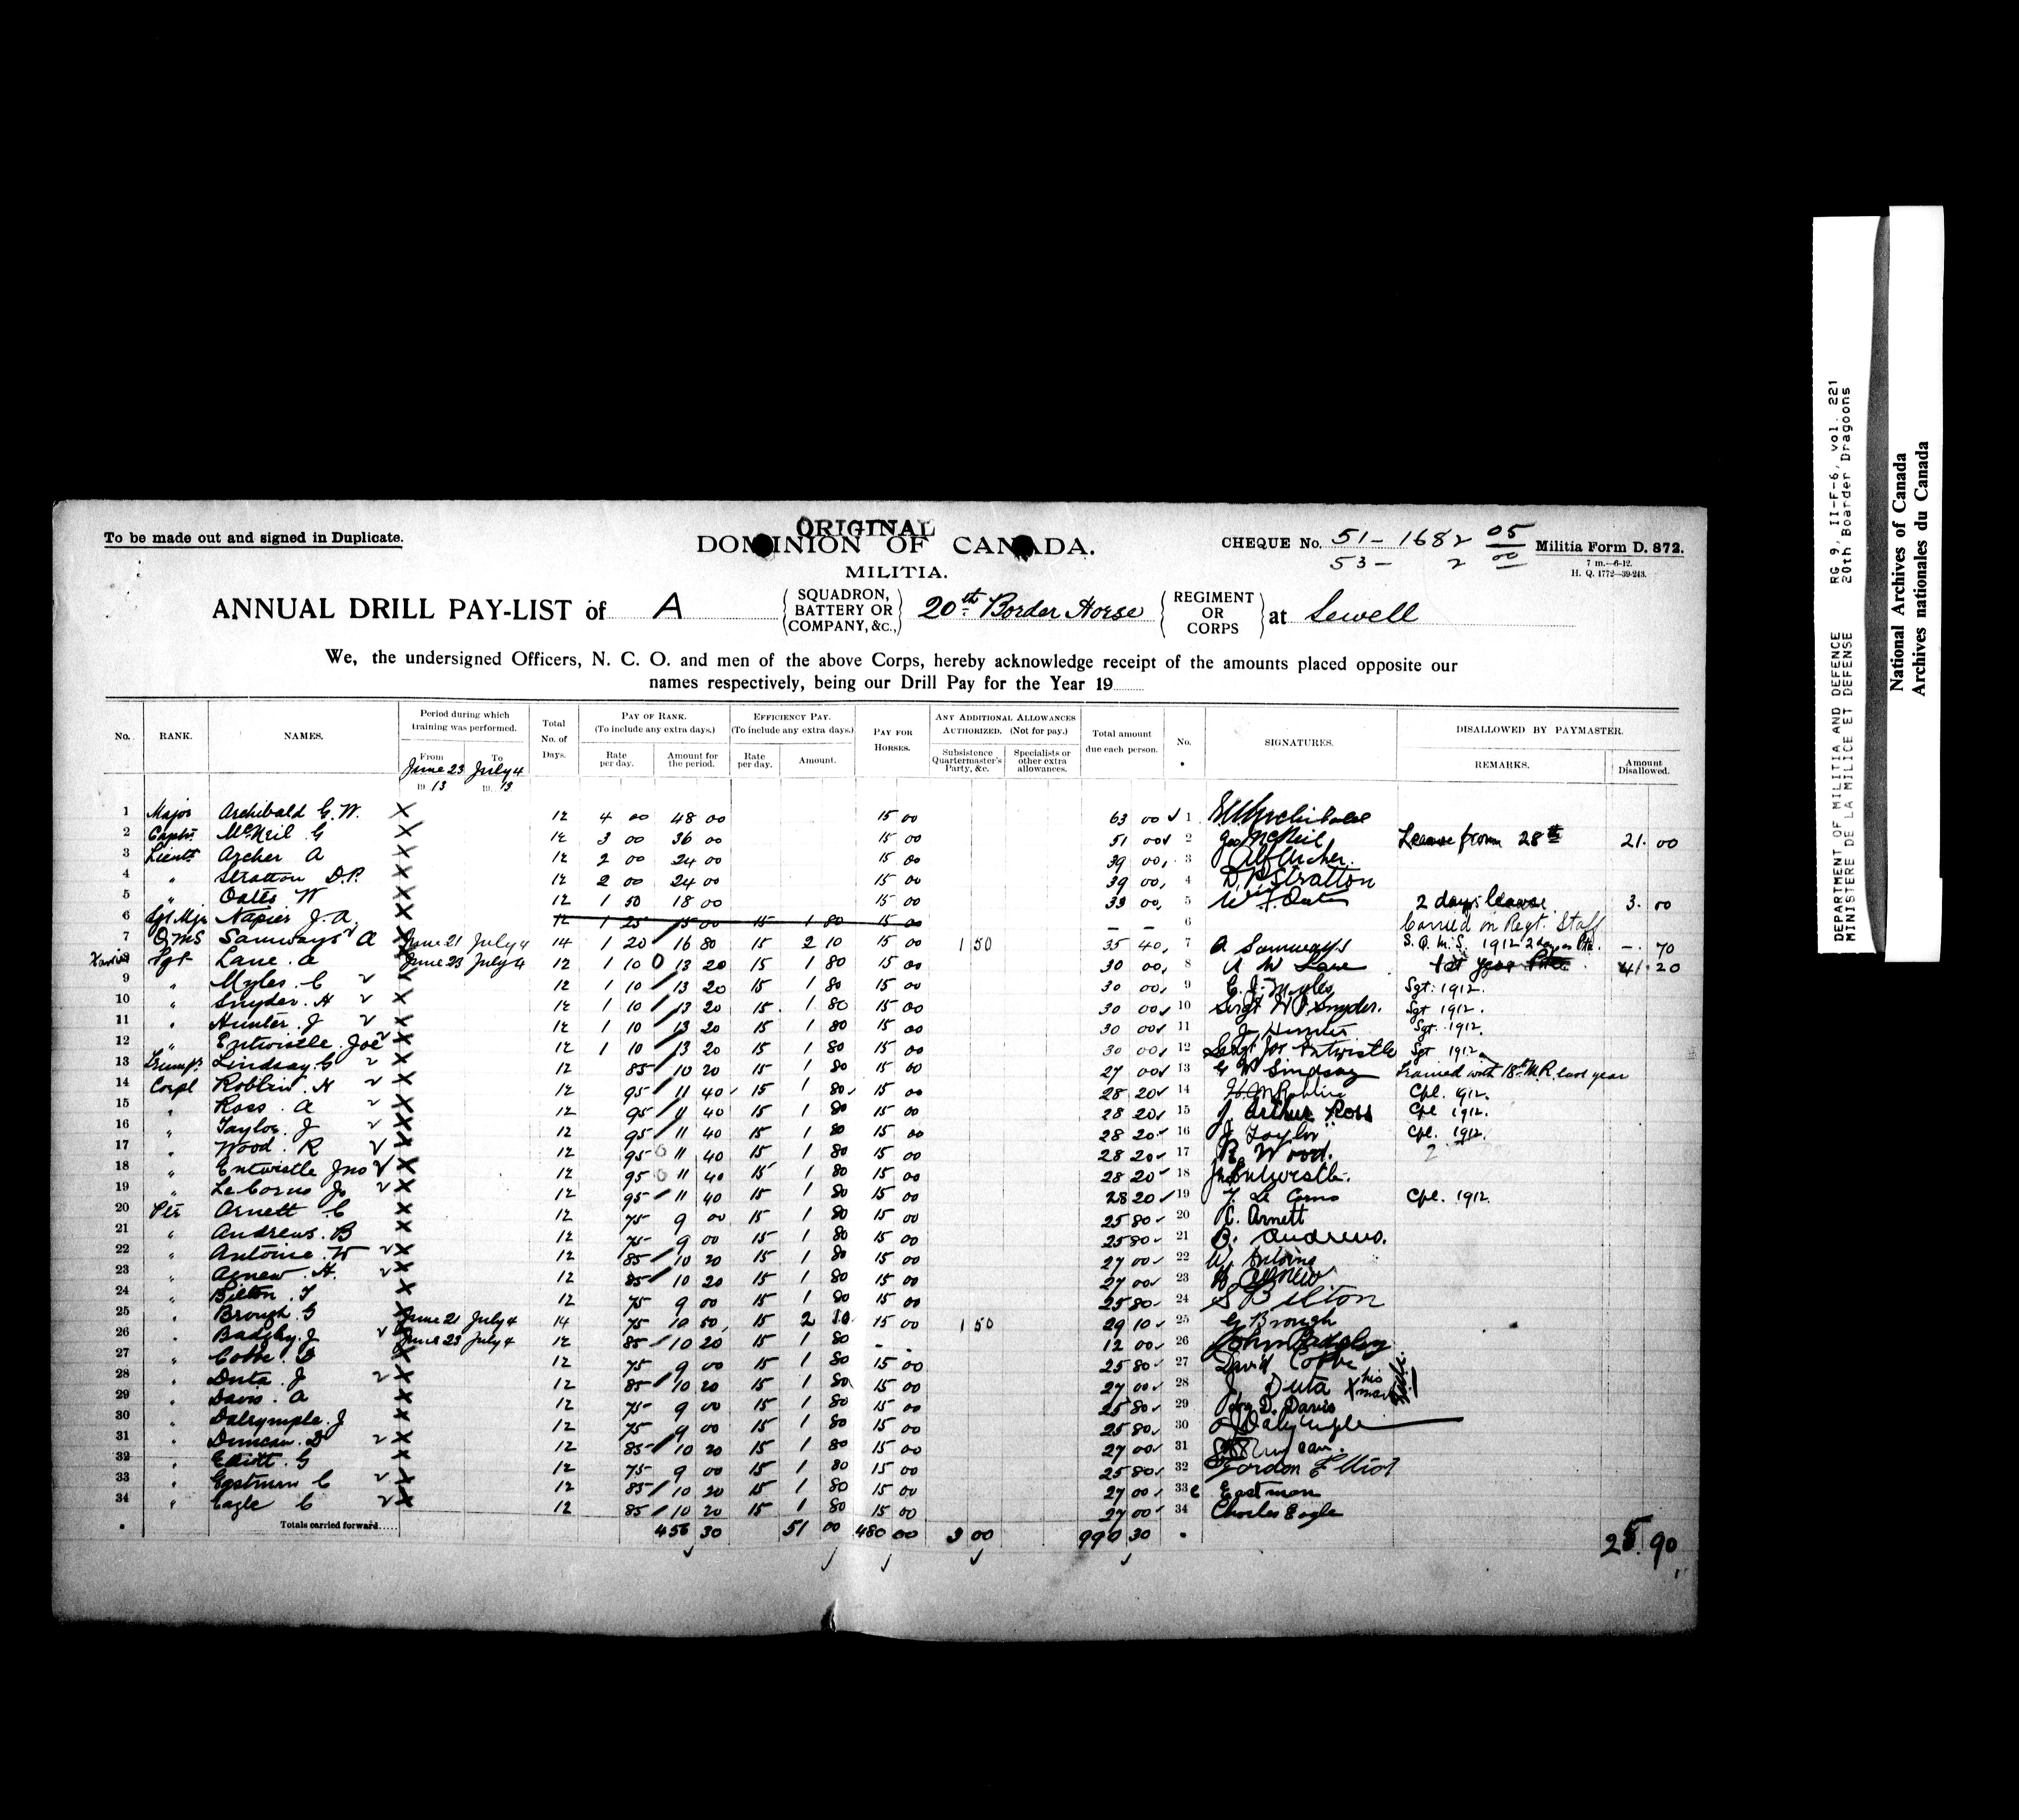 ORIGINAL
To be made out and signed in Duplicate.
DOMINION OF CANADA.
CHEQUE No. 51 - 1682 05
Militia Form D. 872.
53 - 2 00
7 m.—6-12.
H. Q. 1772—39-243.
MILITIA.
ANNUAL DRILL PAY-LIST of A { SQUADRON, BATTERY OR COMPANY, &C., } 20th Border Horse { REGIMENT OR CORPS } at Sewell
We, the undersigned Officers, N. C. O. and men of the above Corps, hereby acknowledge receipt of the amounts placed opposite our
names respectively, being our Drill Pay for the Year 19
No. RANK. NAMES. Period during which training was performed. From To Total No. of Days. PAY OF RANK. (To include any extra days.) Rate per day. Amount for the period. EFFICIENCY PAY. (To include any extra days.) Rate per day. Amount. PAY FOR HORSES. ANY ADDITIONAL ALLOWANCES AUTHORIZED. (Not for pay.) Subsistence Quartermaster's Party, &c. Specialists or other extra allowances. Total amount due each person. No. SIGNATURES. DISALLOWED BY PAYMASTER. REMARKS. Amount Disallowed.
June 23 July 4
19 13 19 13
1 Major Archibald G. W. X 12 4 00 48 00 15 00 63 00 1
2 Captn McNeil G X 12 3 00 36 00 15 00 51 00 2 Geo McNeil Leave from 28th 21. 00
3 Lieut Archer A X 12 2 00 24 00 15 00 39 00 3 Alf Archer.
4 " Stratton D.P. X 12 2 00 24 00 15 00 39 00 4 D. P. Stratton
5 " Oates W X 12 1 50 18 00 15 00 33 00 5 2 days leave 3. 00
6 Sgt Mjr Napier J. A. X 12 1 25 15 00 15 1 80 15 00 - - 6 Carried on Regt. Staff
7 QMS Samways A June 21 July 4 14 1 20 16 80 15 2 10 15 00 1 50 35 40 7 A Samways S. Q. M. S. 1912 -. 70
8 Sgt Lane. A June 23 July 4 12 1 10 13 20 15 1 80 15 00 30 00 8 A W Lane 1st year 1. 20
9 " Myles. C X 12 1 10 13 20 15 1 80 15 00 30 00 9 C. J. Myles Sgt. 1912.
10 " Snyder. H X 12 1 10 13 20 15 1 80 15 00 30 00 10 Sergt Snyder. Sgt 1912.
11 " Hunter. J X 12 1 10 13 20 15 1 80 15 00 30 00 11 J Hunter Sgt. 1912.
12 " Entwistle. Joe X 12 1 10 13 20 15 1 80 15 00 30 00 12 Sergt Jos Entwistle Sgt 1912
13 Trumpr. Lindsay. G X 12 85 10 20 15 1 80 15 00 27 00 13 G W Lindsay Trained with 18th M.R. last year
14 Corpl Roblin. H X 12 95 11 40 15 1 80 15 00 28 20 14 Roblin Cpl. 1912.
15 " Ross. A X 12 95 11 40 15 1 80 15 00 28 20 15 J. Arthur Ross Cpl 1912.
16 " Taylor. J X 12 95 11 40 15 1 80 15 00 28 20 16 J Taylor Cpl. 1912.
17 " Wood. R X 12 95 11 40 15 1 80 15 00 28 20 17 R. Wood.
18 " Entwistle Jno X 12 95 11 40 15 1 80 15 00 28 20 18 Jno Entwistle.
19 " LeCorns Jo X 12 95 11 40 15 1 80 15 00 28 20 19 Cpl. 1912.
20 Pte Arnett. C X 12 75 9 00 15 1 80 15 00 25 80 20 C. Arnett
21 " Andrews. B X 12 75 9 00 15 1 80 15 00 25 80 21 B. Andrews.
22 " Antoine. W X 12 85 10 20 15 1 80 15 00 27 00 22 W. Antoine
23 " Agnew. H. X 12 85 10 20 15 1 80 15 00 27 00 23 H Agnew
24 " Bilton. S X 12 75 9 00 15 1 80 15 00 25 80 24 S Bilton
25 " Brough. G June 21 July 4 14 75 10 50 15 2 10 15 00 1 50 29 10 25 G Brough
26 " Badgley. J June 23 July 4 12 85 10 20 15 1 80 - - 12 00 26 John Badgley
27 " Cobbe. D X 12 75 9 00 15 1 80 15 00 25 80 27 David Cobbe
28 " Duta. J X 12 85 10 20 15 1 80 15 00 27 00 28 J. Duta X his mark
29 " Davis. A X 12 75 9 00 15 1 80 15 00 25 80 29 D. Davis
30 " Dalrymple. J X 12 75 9 00 15 1 80 15 00 25 80 30 J Dalrymple
31 " Duncan. D X 12 85 10 20 15 1 80 15 00 27 00 31 Duncan.
32 " Elliott. G X 12 75 9 00 15 1 80 15 00 25 80 32 Gordon Elliot
33 " Eastman C X 12 85 10 20 15 1 80 15 00 27 00 33 C Eastman
34 " Eagle C X 12 85 10 20 15 1 80 15 00 27 00 34 Charles Eagle
Totals carried forward..... 456 30 51 00 480 00 3 00 990 30 25. 90
DEPARTMENT OF MILITIA AND DEFENCE RG 9, II-F-6, vol. 221
MINISTERE DE LA MILICE ET DEFENSE 20th Boarder Dragoons
National Archives of Canada
Archives nationales du Canada